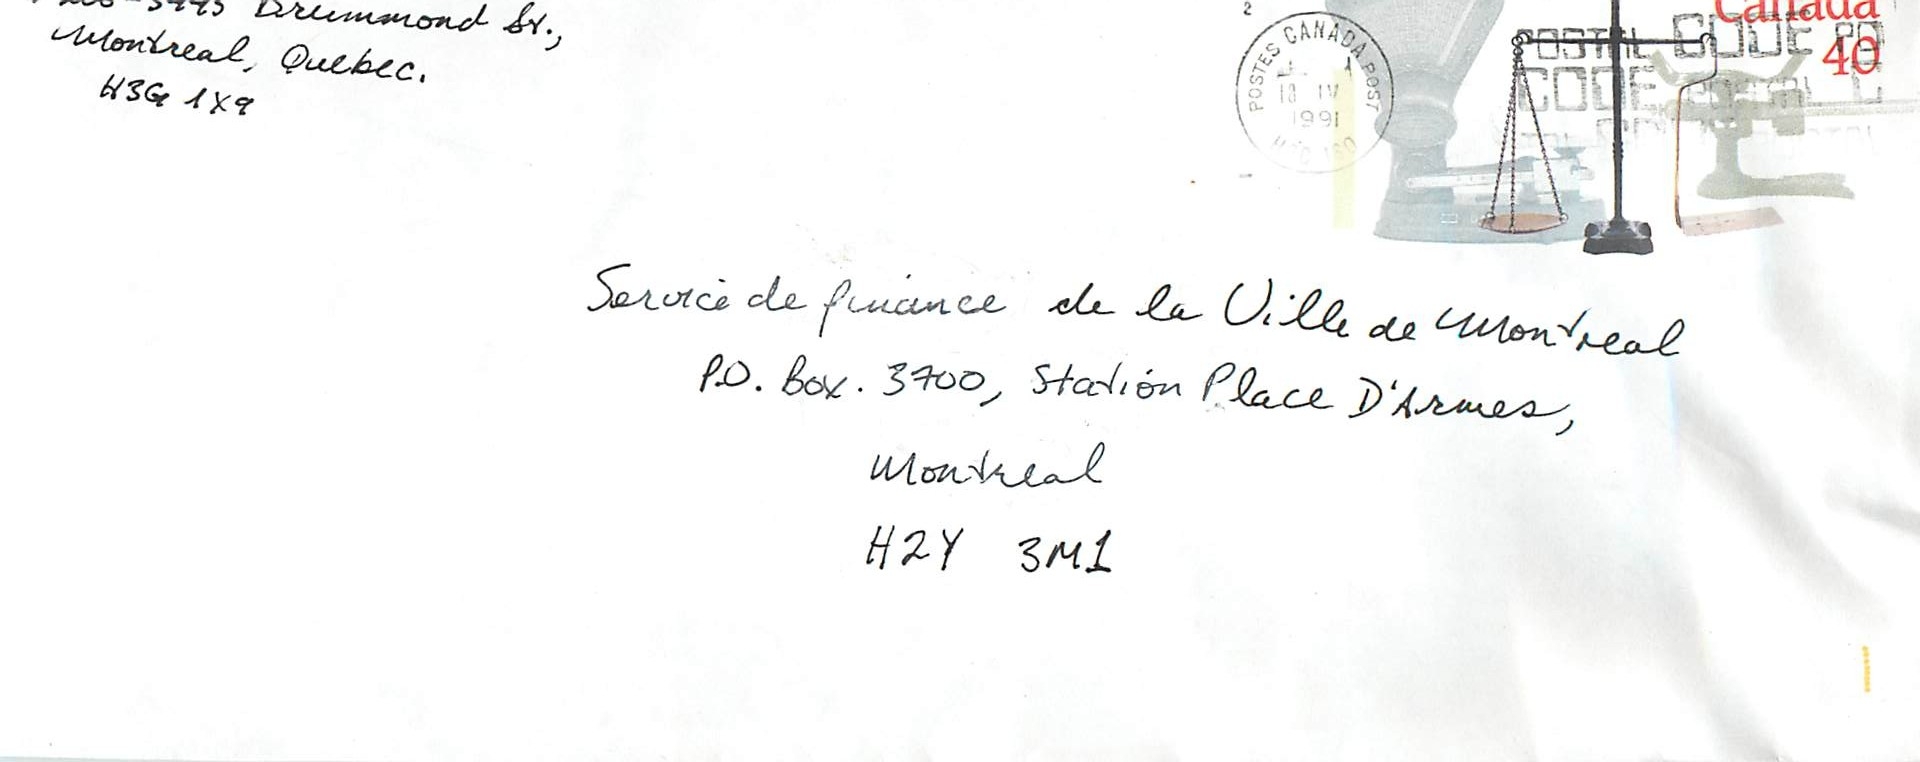 Drummond St.,
Montreal, Quebec.
H3G 1X9
2
POSTES CANADA POST
18 IV
1991
Canada
40
POSTAL CODE PO
CODE POSTAL C
Service de finance de la Ville de Montreal
P.O. Box. 3700, Station Place D'Armes,
Montreal
H2Y 3M1